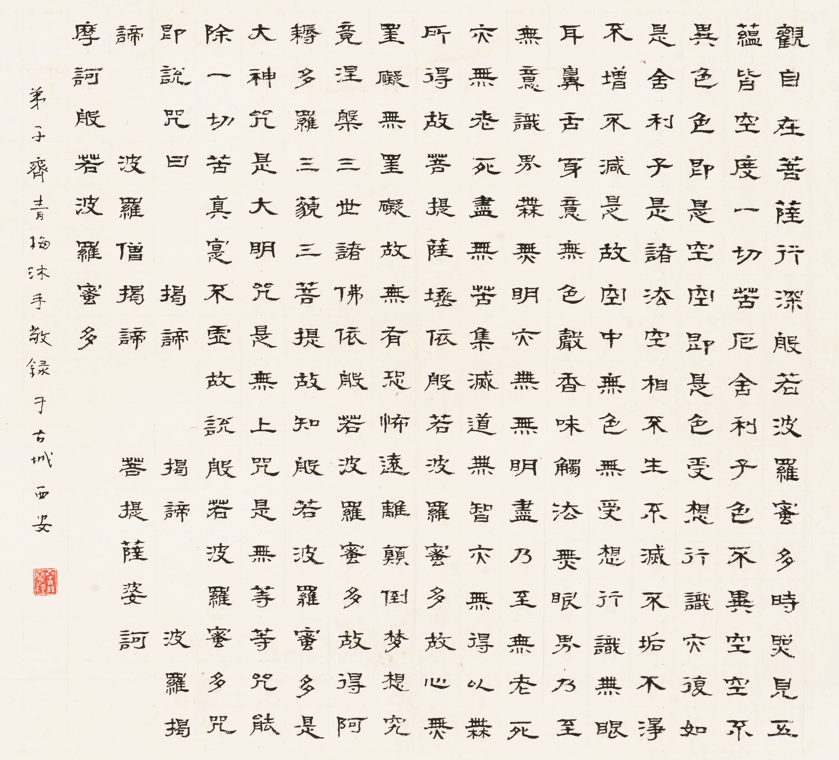 觀自在菩薩行深般若波羅蜜多時照見五
蘊皆空度一切苦厄舍利子色不異空空不
異色色即是空空即是色受想行識亦復如
是舍利子是諸法空相不生不滅不垢不淨
不增不減是故空中無色無受想行識無眼
耳鼻舌身意無色聲香味觸法無眼界乃至
無意識界無無明亦無無明盡乃至無老死
亦無老死盡無苦集滅道無智亦無得以無
所得故菩提薩埵依般若波羅蜜多故心無
罣礙無罣礙故無有恐怖遠離顛倒梦想究
竟涅槃三世諸佛依般若波羅蜜多故得阿
耨多羅三藐三菩提故知般若波羅蜜多是
大神咒是大明咒是無上咒是無等等咒能
除一切苦真寔不虛故説般若波羅蜜多咒
即説咒曰 揭諦 揭諦 波羅揭
諦 波羅僧揭諦 菩提薩婆訶
摩訶般若波羅蜜多
弟子齊青梅沐手敬録于古城西安